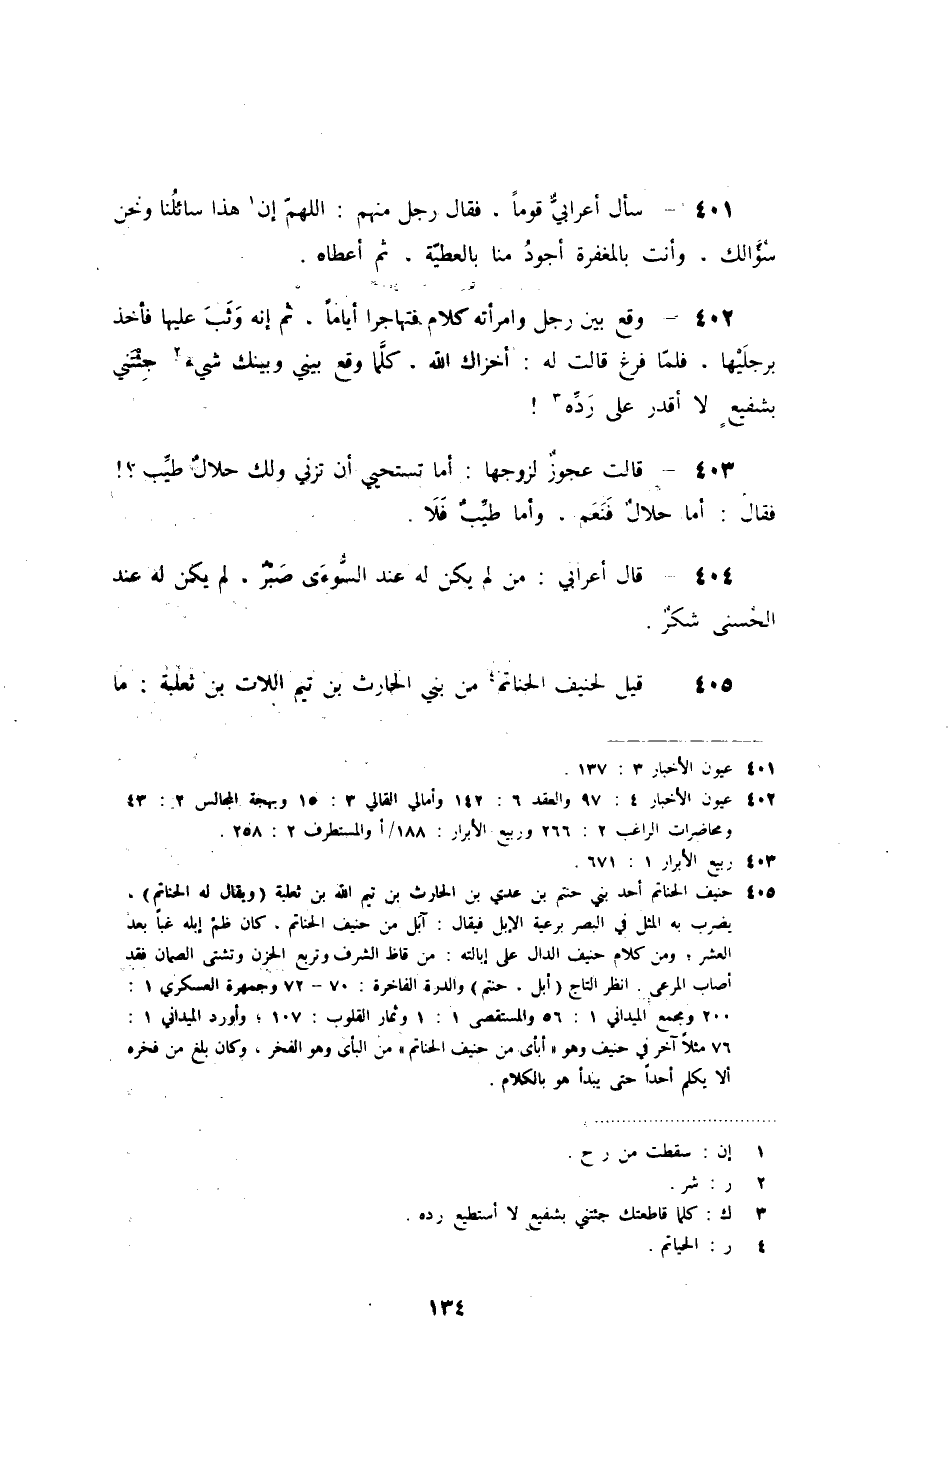 ٤٠١ – سأل أعرابيٌّ قوماً . فقال رجل منهم : اللهمّ إن١ هذا سائلُنا ونحن
سُؤَّالك . وأنت بالمغفرة أجودُ منا بالعطيّة . ثم أعطاه .
٤٠٢ – وقع بين رجل وامرأته كلام فتهاجرا أياماً . ثم إنه وَثَبَ عليها فأخذ
برجلَيْها . فلمّا فرغ قالت له : أخزاك الله . كلَّما وقع بيني وبينك شيء٢ جِئْتَني
بشفيعٍ لا أقدر على رَدِّه٣ !
٤٠٣ – قالت عجوزٌ لزوجها : أما تستحيي أن تزني ولك حلالٌ طيِّب ؟!
فقال : أما حلالٌ فَنَعَم . وأما طيِّبٌ فَلَا .
٤٠٤ – قال أعرابي : من لم يكن له عند السُّوءَى صَبْرٌ . لم يكن له عند
الحُسنى شكرٌ .
٤٠٥ قيل لحنيف الحناتم٤ من بني الحارث بن تيم اللات بن ثعلبة : ما
٤٠١ عيون الأخبار ٣ : ١٣٧ .
٤٠٢ عيون الأخبار ٤ : ٩٧ والعقد ٦ : ١٤٢ وأمالي القالي ٣ : ١٥ وبهجة المجالس ٢ : ٤٣
ومحاضرات الراغب ٢ : ٢٦٦ وربيع الأبرار : ١٨٨/أ والمستطرف ٢ : ٢٥٨ .
٤٠٣ ربيع الأبرار ١ : ٦٧١ .
٤٠٥ حنيف الحناتم أحد بني حنتم بن عدي بن الحارث بن تيم الله بن ثعلبة (ويقال له الحناتم) .
يضرب به المثل في البصر برعية الإبل فيقال : آبل من حنيف الحناتم . كان ظمْ إبله غباً بعد
العشر ؛ ومن كلام حنيف الدال على إبالته : من قاظ الشرف وتربع الحزن وتشتى الصمان فقد
أصاب المرعى . انظر التاج (أبل . حنتم) والدرة الفاخرة : ٧٠ – ٧٢ وجمهرة العسكري ١ :
٢٠٠ ومجمع الميداني ١ : ٥٦ والمستقصى ١ : ١ وثمار القلوب : ١٠٧ ؛ وأورد الميداني ١ :
٧٦ مثلاً آخر في حنيف وهو « أبأى من حنيف الحناتم » من البأى وهو الفخر ، وكان بلغ من فخره
ألا يكلم أحداً حتى يبدأ هو بالكلام .
١ إن : سقطت من ر ح .
٢ ر : شر .
٣ ك : كلما قاطعتك جئتني بشفيعٍ لا أستطيع رده .
٤ ر : الحياتم .
١٣٤